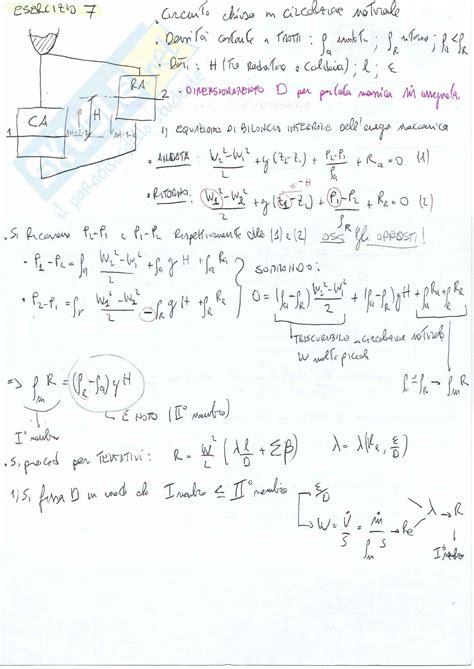 ESERCIZIO 7
• Circuito chiuso in circolazione naturale
• Densità costante a TRATTI: ρa andata; ρR ritorno; ρa<ρR
• Dati: H (tra Radiatore e Caldaia); l; ε
• DIMENSIONAMENTO D per portata massica ṁ assegnata.
RA
CA
1
2
H
1) EQUAZIONI DI BILANCIO INTEGRALE dell'energia meccanica
• ANDATA: (W2²-W1²)/2 + g(z2-z1) + (P2-P1)/ρa + Ra = 0 (1)
-H
• RITORNO: (W1²-W2²)/2 + g(z1-z2) + (P1-P2)/ρR + RR = 0 (2)
• Si Ricavano P2-P1 e P1-P2 Rispettivamente dalle (1) e (2) OSS Gli OPPOSTI!
• P1-P2 = ρa (W2²-W1²)/2 + ρa g H + ρa Ra
• P2-P1 = ρr (W1²-W2²)/2 - ρR g H + ρR RR
SOMMANDO:
0 = (ρa-ρR) (W2²-W1²)/2 + (ρa-ρR) g H + ρa Ra + ρR RR
TRASCURIBILE in circolazione naturale
W molto piccola
→ ρm R
=> ρm R = (ρR-ρa) g H
È NOTO (II° membro)
I° membro
• Si procede per TENTATIVI: R = W²/2 (λl/D + Σβ) λ = λ(Re, ε/D)
1) Si fissa D in modo che I membro ≤ II° membro
→ ε/D
→ W = V̇/S = ṁ/(ρm S) → Re
→ λ → R
I° membro